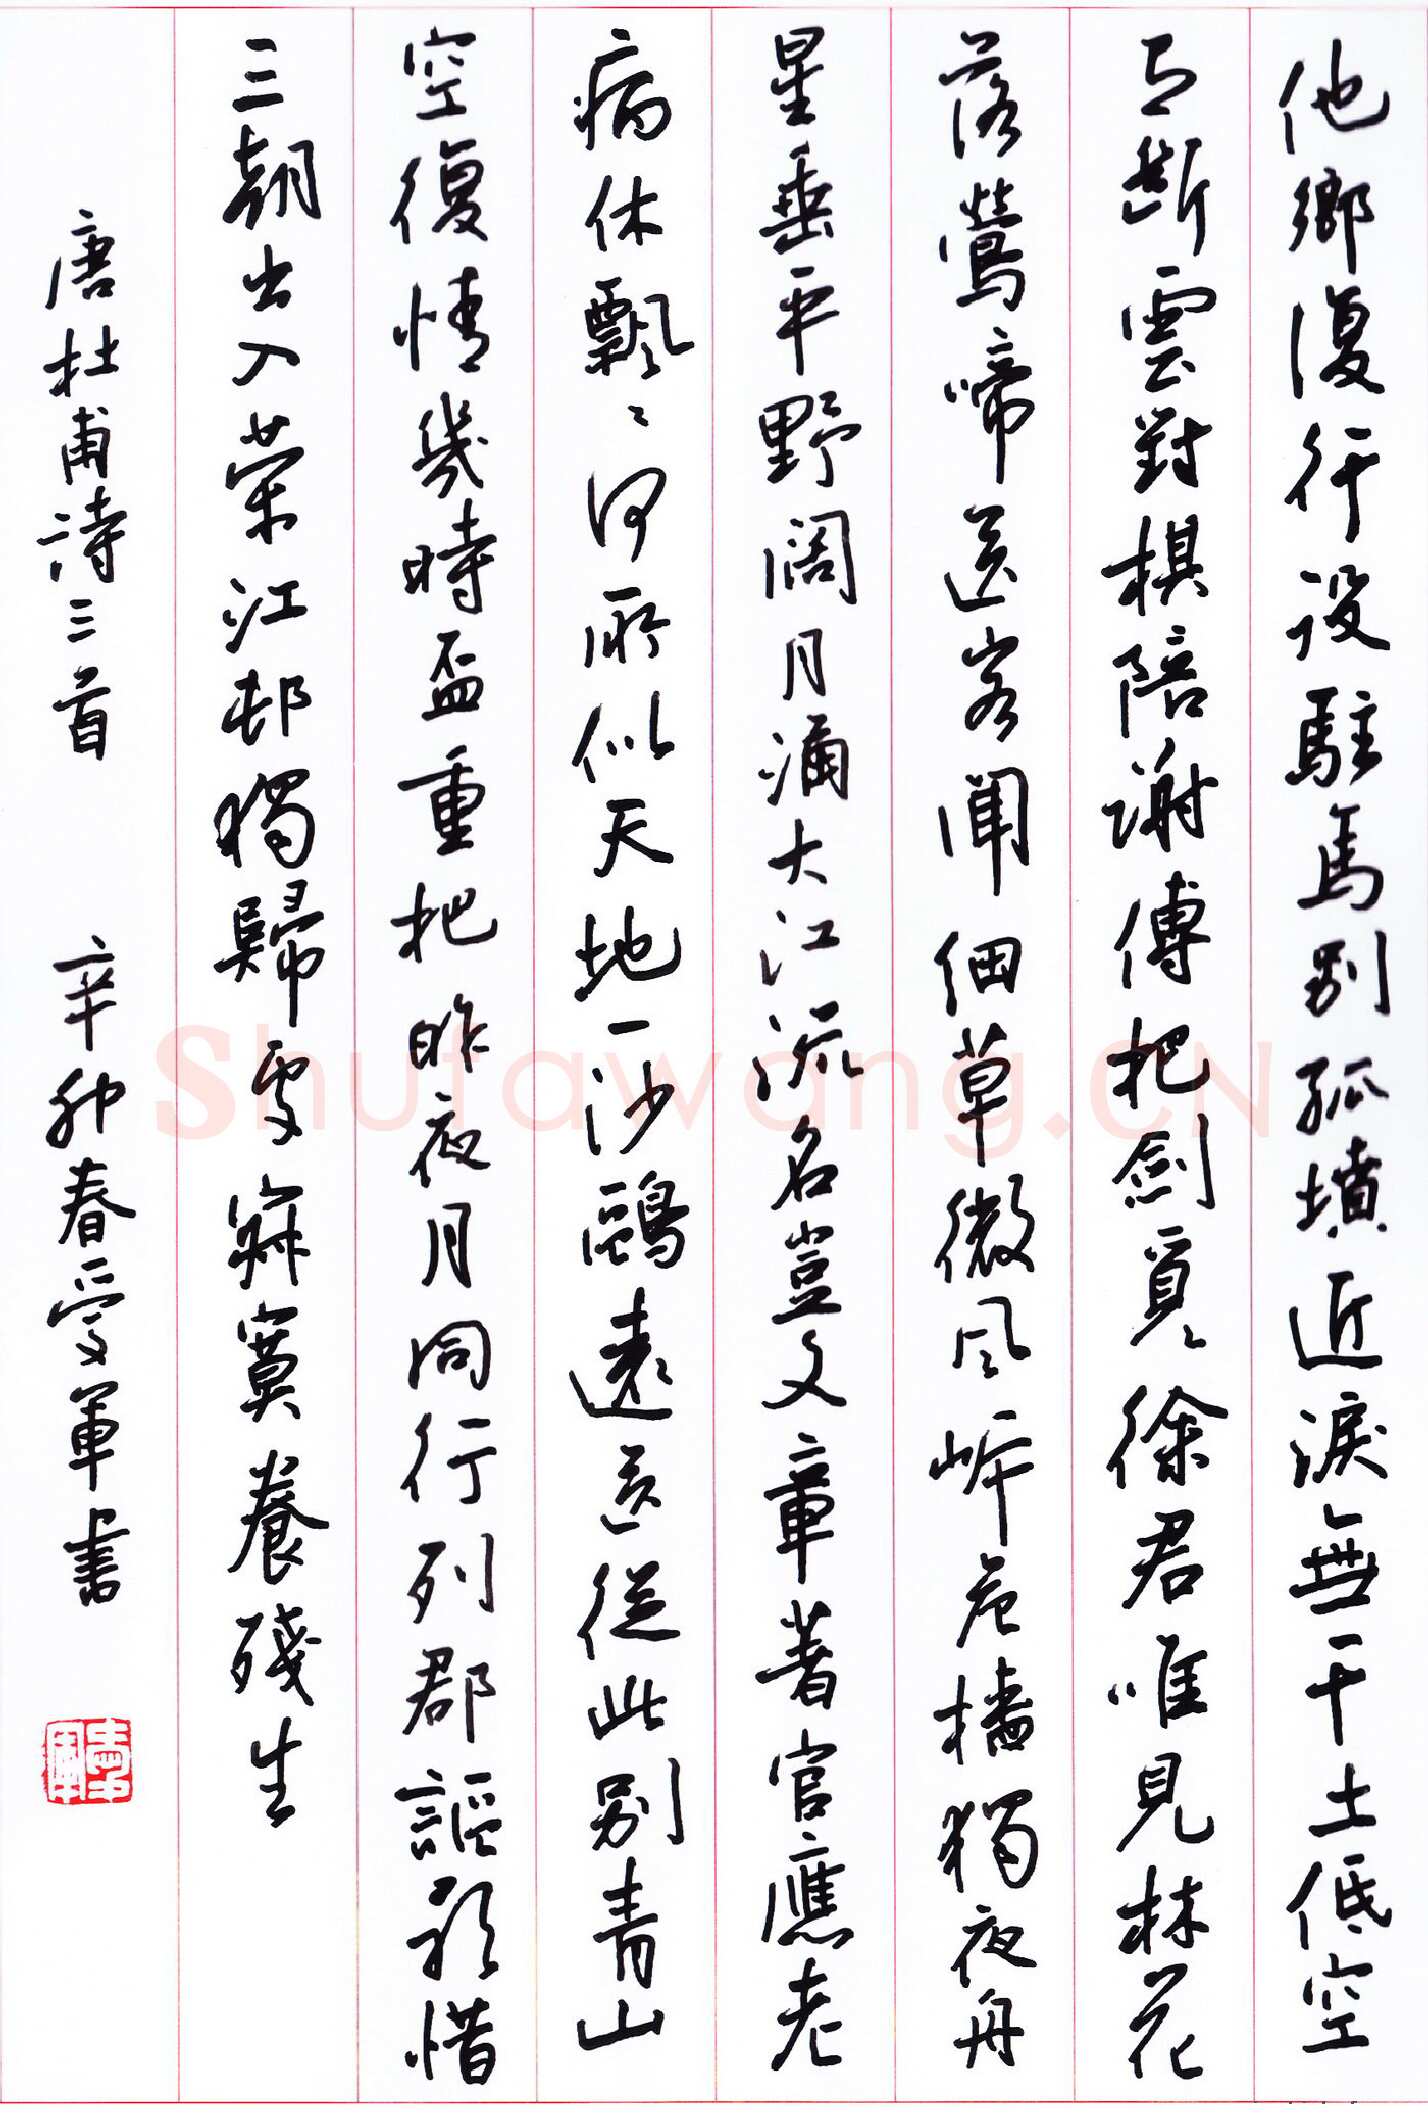 他鄉復行役駐馬別孤墳近淚無干土低空
有斷雲對棋陪謝傅把劍覓徐君唯見林花
落鶯啼送客聞細草微風岸危檣獨夜舟
星垂平野闊月涌大江流名豈文章著官應老
病休飄々何所似天地一沙鷗遠送從此別青山
空復情幾時盃重把昨夜月同行列郡謳歌惜
三朝出入榮江邨獨歸處寂寞養殘生
唐杜甫詩三首 辛卯春受軍書
Shufawang.CN